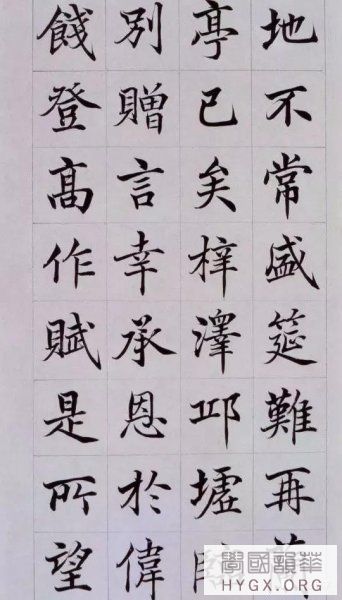 地不常盛筵難再
亭已矣梓澤邱墟
別贈言幸承恩於偉
餞登髙作賦是所望
華韻國學
HYGX.ORG